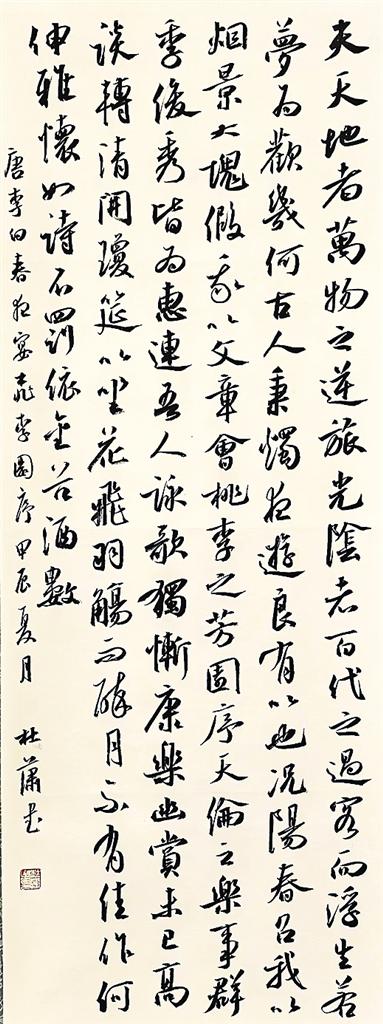 夫天地者萬物之逆旅光陰者百代之過客而浮生若
夢為歡幾何古人秉燭夜遊良有以也況陽春召我以
烟景大塊假我以文章會桃李之芳園序天倫之樂事群
季俊秀皆為惠連吾人詠歌獨慚康樂幽賞未已高
談轉清開瓊筵以坐花飛羽觴而醉月不有佳作何
伸雅懷如詩不罰依金谷酒數
唐李白春夜宴桃李園序甲辰夏月 杜蕭